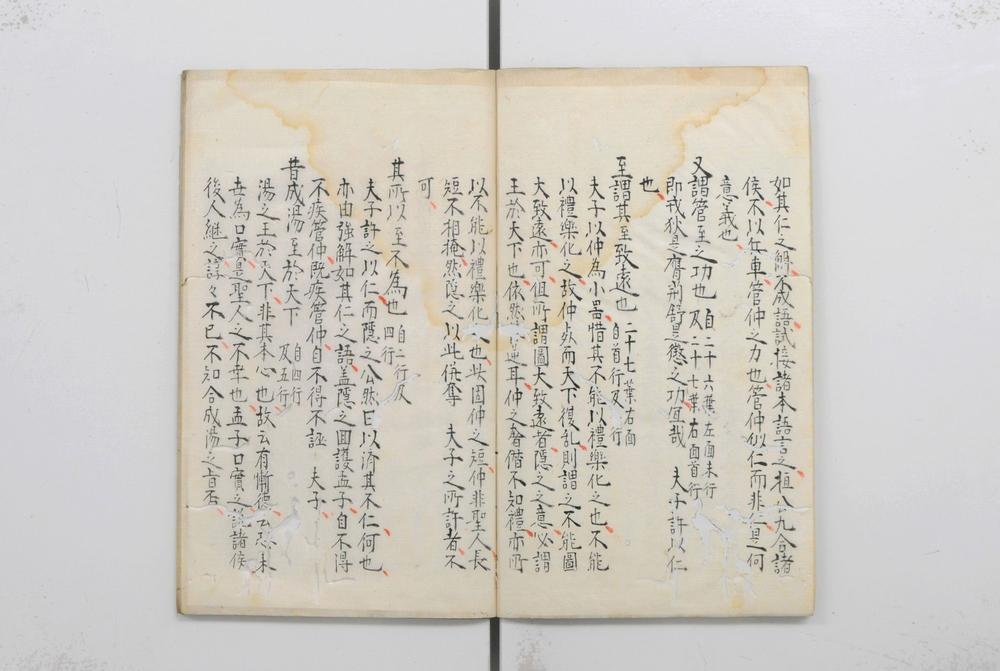 如其仁之解不成語試接諸本語言之桓公九合諸
侯不以兵車管仲之力也管仲似仁而非仁是何
意義也
又謂管至之功也 自二十六葉左面末行
及二十七葉右面首行
即戎狄是膺荊舒是懲之功宜哉 夫子許以仁
也
至謂其至致遠也 二十七葉右面
自首行及 行
夫子以仲為小器惜其不能以禮樂化之也不能
以禮樂化之故仲死而天下復乱則謂之不能圖
大致遠亦可但所謂圖大致遠者隠之之意必謂
王於天下也依然 逆耳仲之奢僭不知禮亦所
以不能以禮樂化 也此固仲之短仲非聖人長
短不相掩然隠之以此併奪 夫子之所許者不
可
其所以至不為也 自二行及
四行
夫子許之以仁而隠之公然曰以済其不仁何也
亦由強解如其仁之語盖隠之回護孟子自不得
不疾管仲既疾管仲自不得不誣 夫子
昔成湯至於天下 自四行
及五行
湯之王於天下非其本心也故云有慚德云恐来
世為口實是聖人之不幸也孟子口實之説諸侯
後人継之諄々不已不知合成湯之旨否